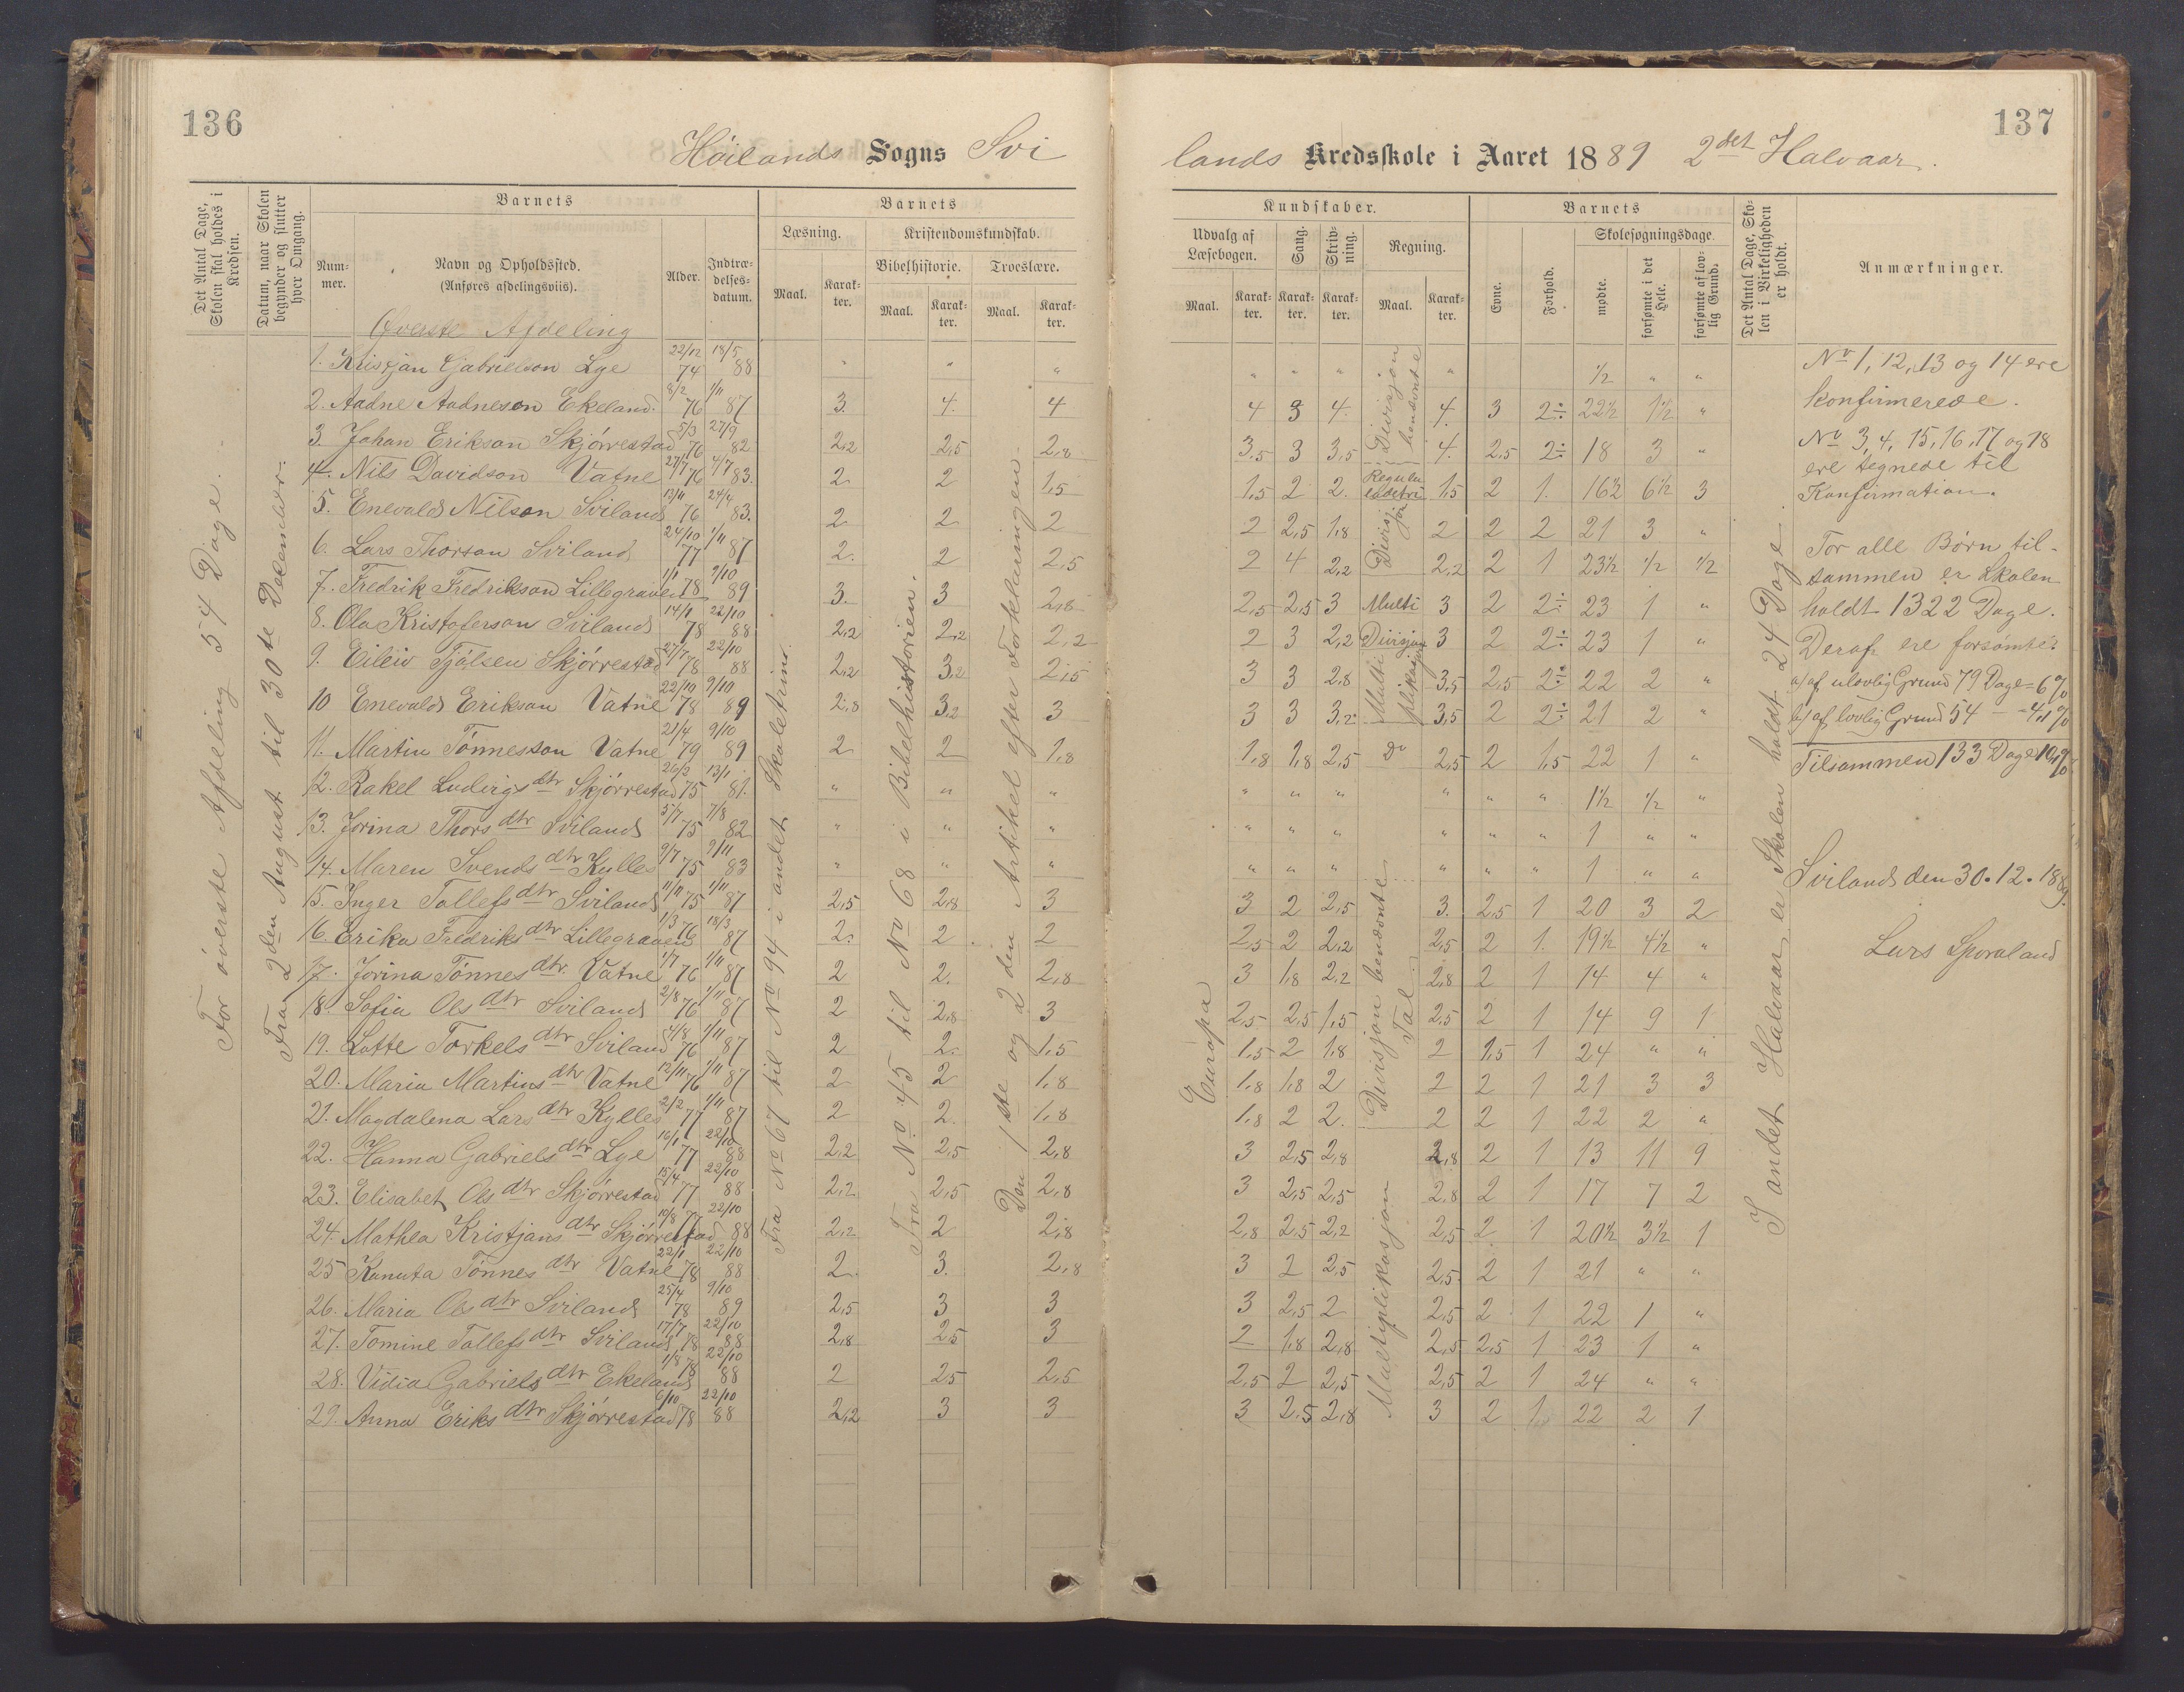 136
Höilands Sogns Svi
Det Antal Dage, Skolen skal holdes i Kredsen.
Datum, naar Skolen begynder og slutter hver Omgang.
Barnets
Num-mer.
Navn og Opholdssted.
(Anføres afdelingsviis).
Alder.
Indtræ-delses-datum.
Barnets
Læsning.
Kristendomskundskab.
Bibelhistorie.
Troeslære.
Maal.
Karak-ter.
Maal.
Karak-ter.
Maal.
Karak-ter.
Øverste Afdeling
For øverste Afdeling 54 Dage.
Fra 2den August til 30te Desember.
Fra No 67 til No 94 i andet Skoletrin.
Fra No 45 til No 68 i Bibelhistorien.
Den 1ste og 2den Artikel efter Forklaringen.
1. Kristjan Gabrielson Lye 22/12 74 18/5 88 " " "
2. Aadne Aadneson Ekeland. 8/2 76 1/11 87 3. 4. 4
3. Johan Erikson Skjørrestad 5/3 76 27/9 82 2,2 2,5 2,8
4. Nils Davidson Vatne 27/7 76 4/7 83. 2 2 1,5
5. Enevald Nilson Sviland 13/11 76 24/4 83. 2 2 2
6. Lars Thorson Sviland 24/10 77 1/11 87 2. 2 2,5
7. Fredrik Fredrikson Lillegraven 1/1 78 9/10 89 3. 3 2,8
8. Ola Kristoferson Sviland 14/1 78 22/10 88 2,2 2,2 2,2
9. Eileiv Tjölsen Skjørrestad 27/7 78 22/10 88 2,2 3,2 2,5
10 Enevald Erikson Vatne 22/10 78 9/10 89 2,8 3,2 3
11. Martin Tönnesson Vatne 21/4 79 9/10 89 2 2 1,8
12. Rakel Ludvigs dtr Skjørrestad 26/3 75 13/1 81. " " "
13. Jorina Thors dtr Sviland 5/7 75 7/8 82 " " "
14. Maren Svends dtr Kylles 9/7 75 9/11 83 " " "
15. Inger Tollefs dtr Sviland 11/11 75 1/11 87 2,5 2,8 3
16. Erika Fredriks dtr Lillegraven 1/3 76 18/3 87 2. 2 2
17. Jorina Tönnes dtr. Vatne 1/7 76 1/11 87 2 2. 2,8
18. Sofia Ols dtr Sviland 2/8 76 1/11 87 2 2,8 3
19. Lotte Torkels dtr Sviland 4/8 76 1/11 87 2 2. 1,5
20. Maria Martins dtr Vatne 12/11 76 1/11 87 2 2 1,8
21. Magdalena Lars dtr Kylles 2/2 77 1/11 87 2 2. 1,8
22. Hanna Gabriels dtr Lye 16/1 77 22/10 88 2,2 2,5 2,8
23. Elisabet Ols dtr Skjørrestad 15/4 77 22/10 88 2,2 2,5 2,8
24. Mathea Kristjans dtr Skjørrestad 10/8 77 22/10 88 2,2 2 2,8
25 Kanuta Tönnes dtr Vatne 22/1 78 22/10 88 2. 3. 2,8
26. Maria Ols dtr Sviland 25/4 78 9/10 89 2,5 3 3
27. Tomine Tollefs dtr Sviland 17/7 78 22/10 88 2,8 2,5 3
28. Vidia Gabriels dtr Ekeland 1/8 78 22/10 88 2 2,5 2,5
29. Anna Eriks dtr Skjørrestad 6/10 78 22/10 88 2,2 3 3
137
lands Kredsskole i Aaret 1889 2det Halvaar.
Kundskaber.
Udvalg af Læsebogen.
Sang.
Skriv-ning.
Regning.
Maal.
Karak-ter.
Karak-ter.
Karak-ter.
Maal.
Karak-ter.
Barnets
Evne.
Forhold.
Skolesøgningsdage.
mødte.
forsømte i det Hele.
forsømte af lov-lig Grund.
Det Antal Dage, Sko-len i Virkeligheden er holdt.
Anmærkninger.
Europa
Divisjon benævnte
Reguladetri
Divisjon
Multi
Divisjon
Multiplikasjon
do
Divisjon benævnte Tal
Multiplikasjon
I andet Halvaar er Skolen holdt 24 Dage.
" " " " ½ " "
4 3 4. 4. 3 2÷ 22½ 1½ "
3,5 3 3,5 4. 2,5 2÷ 18 3 "
1,5 2 2. 1,5 2 1. 16½ 6½ 3
2 2,5 1,8 2 2 2 21 3 "
2 4 2,2 2,2 2 1 23½ ½ ½
2,5 2,5 3 3 2 2÷ 23 1 "
2 3 2,2 3 2 2÷ 23 1 "
3 3 2,8 3,5 2,5 2÷ 22 2 "
3 3 3,2 3,5 2 2÷ 21 2 "
1,8 1,8 2,5 2,5 2 1,5 22 1 "
" " " " " " 1½ ½ "
" " " " " " 1 " "
" " " " " " 1 " "
3 2 2,5 3. 2,5 1 20 3 2
2,5 2 2,2 2,5 2 1. 19½ 4½ "
3 1,8 2,2 2,8 2 1 14 4 "
2,5 2,5 1,5 2,5 2 1 14 9 1
1,5 2 1,8 2 1,5 1 24 " "
1,8 1,8 2 2 2 1 21 3 3
1,8 2 2. 2 2 1 22 2 "
3 2,5 2,8 2,8 2 1 13 11 9
3 2,5 2,5 2,8 2 1 17 7 2
2,8 2,5 2,2 2,5 2 1 20½ 3½ 1
3 2 2,5 2,5 2 1 21 " "
3 2,5 2 2,5 2 1 22 1 "
2 1,8 2,8 2,5 2,5 1 23 1 "
2,5 2 2,5 2,5 2 1 24 " "
3 2,5 2,8 3 2 1 22 2 1
No 1, 12, 13 og 14 ere
konfirmerede.
No 3, 4, 15, 16, 17 og 18
ere tegnede til
Konfirmation.
For alle Børn til-
sammen er Skolen
holdt 1322 Dage.
Deraf ere forsømte:
a) af ulovlig Grund 79 Dage = 6%
b) af lovlig Grund 54 — = 4,1%
Tilsammen 133 Dage 10,1%
Sviland den 30.12.1889.
Lars